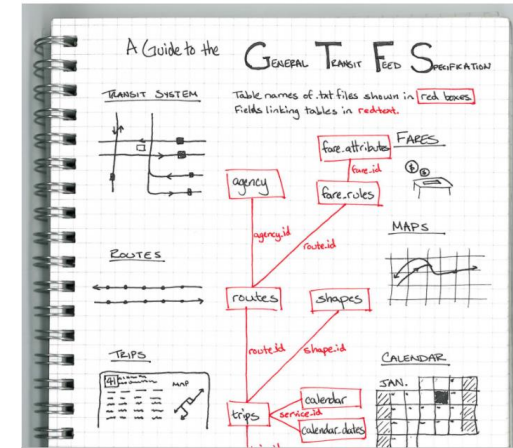 A Guide to the GENERAL TRANSIT FEED SPECIFICATION
TRANSIT SYSTEM
Table names of .txt files shown in red boxes
Fields linking tables in red text.
FARES
fare_attributes
fare_id
agency
fare_rules
agency_id
route_id
MAPS
ROUTES
routes
shapes
route_id
shape_id
TRIPS
CALENDAR
41
MAP
JAN.
calendar
trips
service_id
calendar_dates